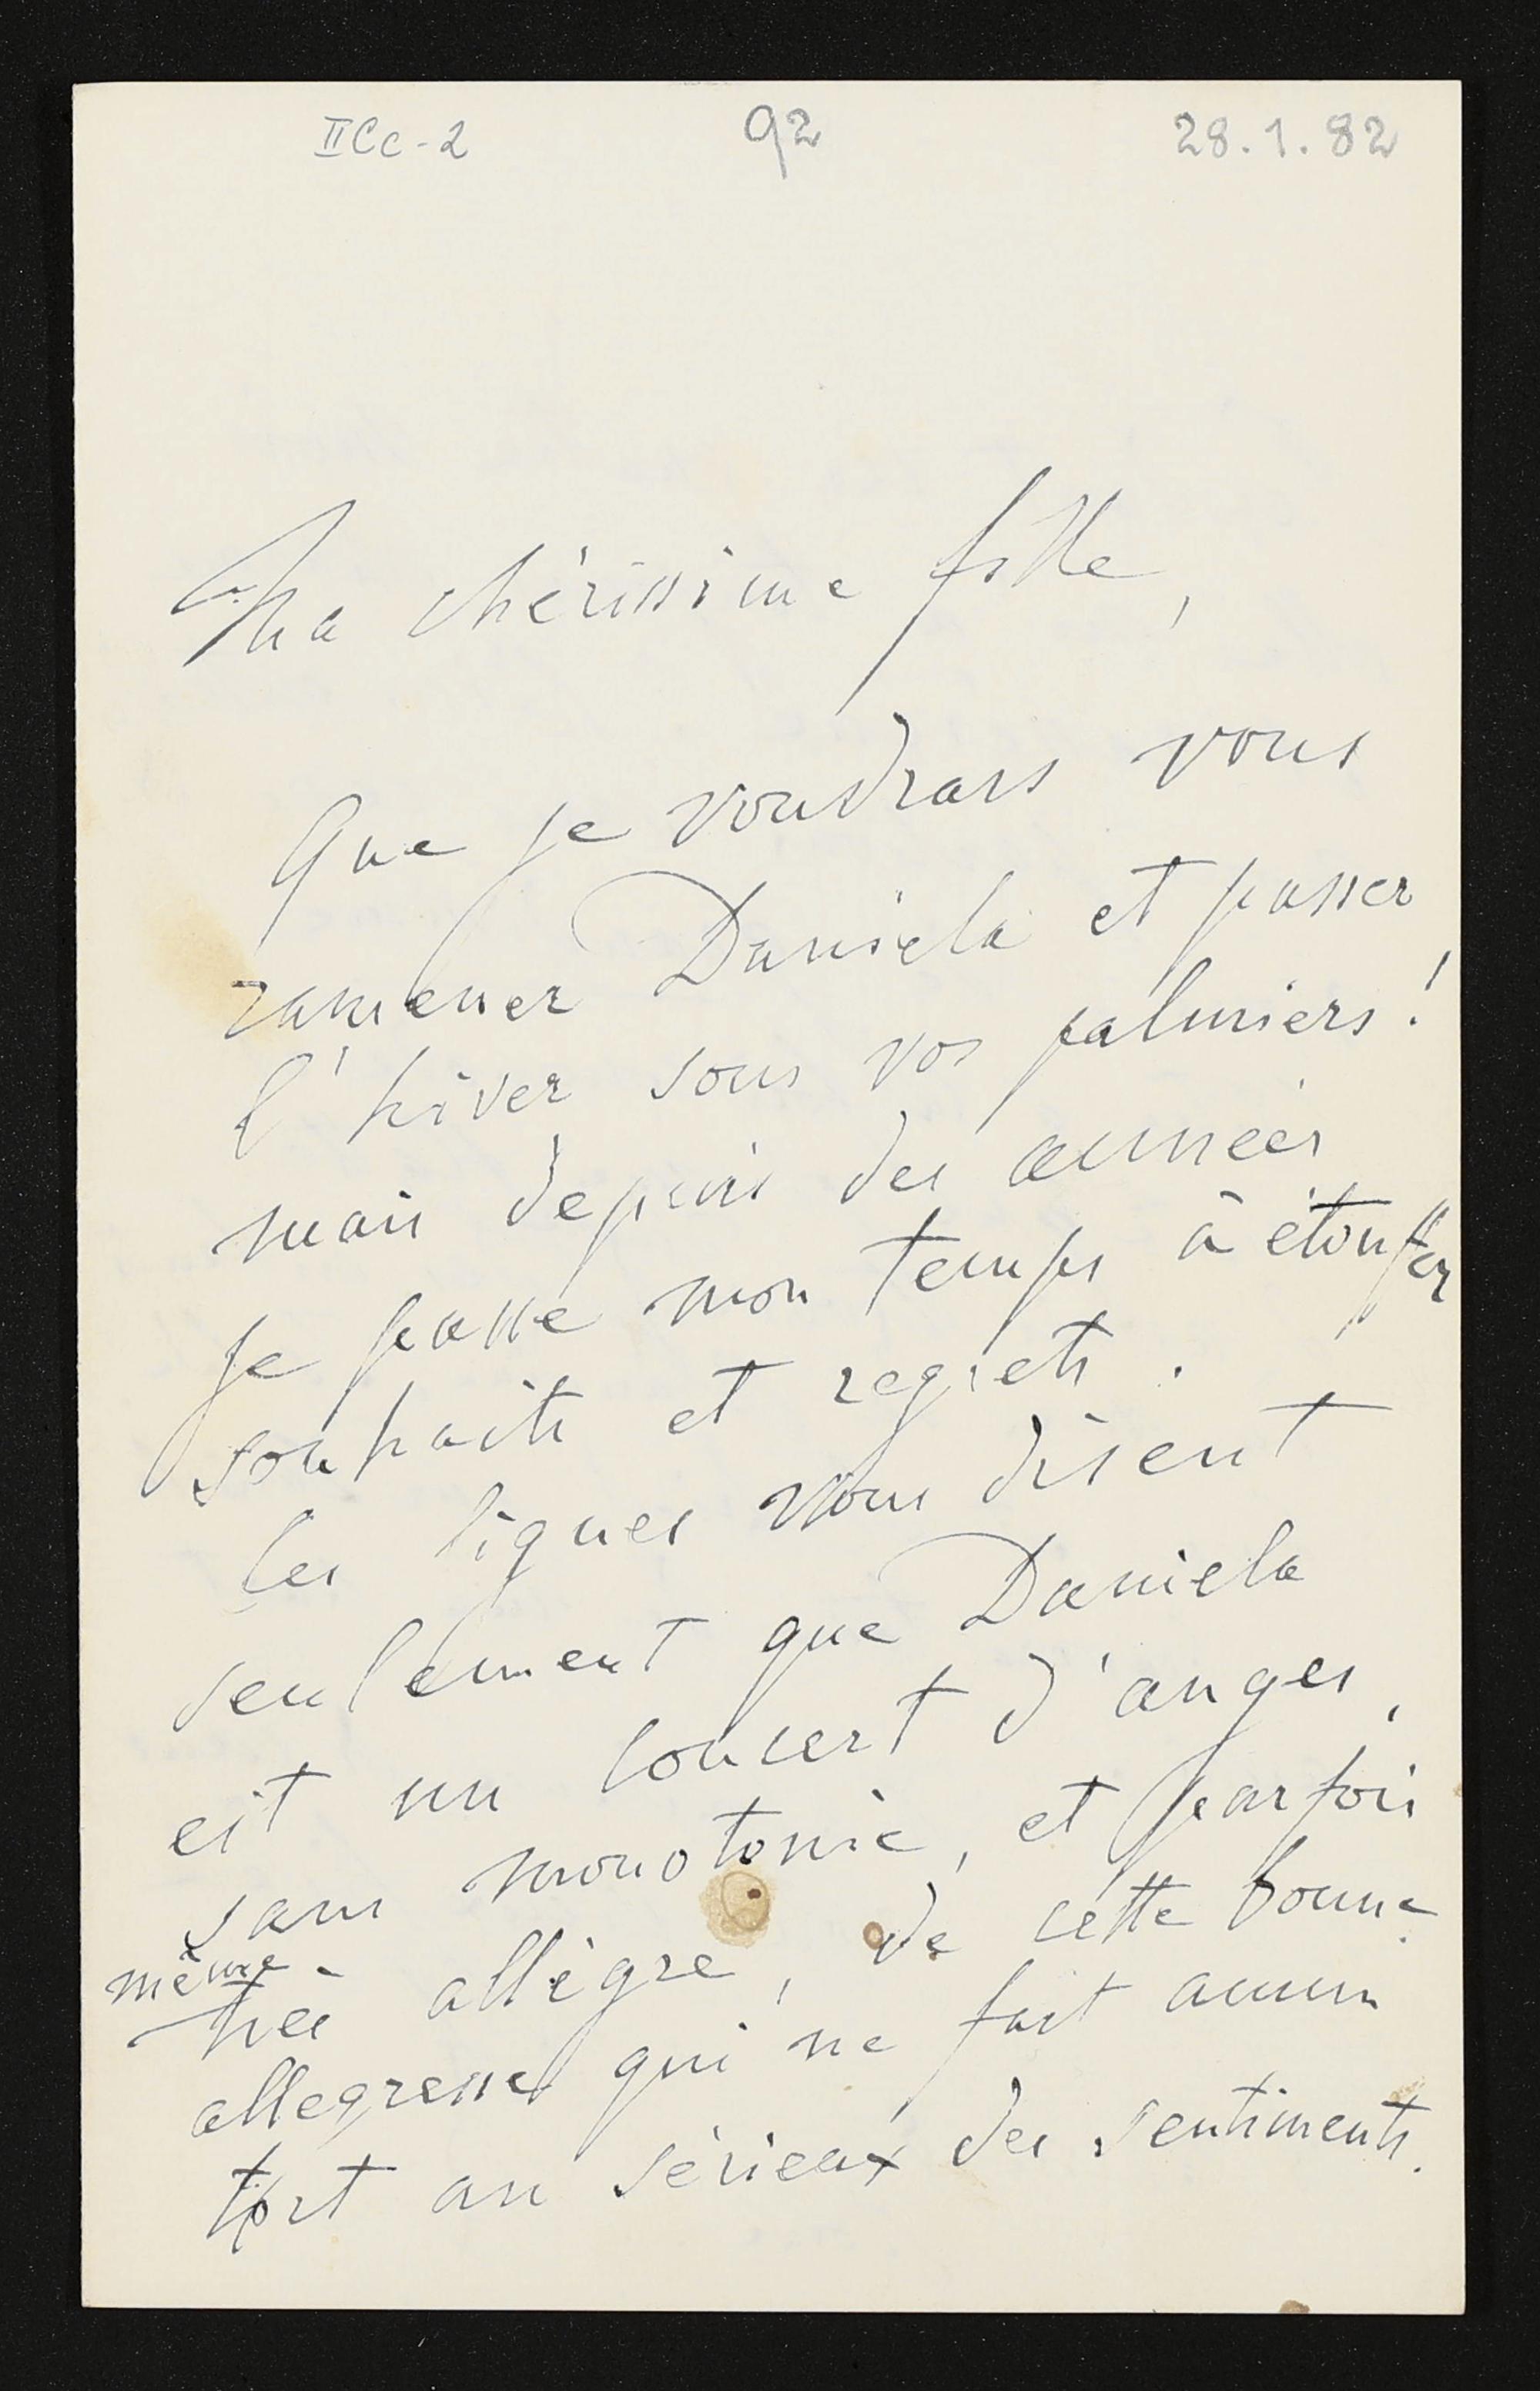 IICc-2 92 28.1.82
Ma chérissime fille,
Que je voudrais vous
ramener Daniela et passer
l'hiver sous vos palmiers!
mais depuis des années
je passe mon temps à étouffer
souhaits et regrets.
Ces lignes vous disent
seulement que Daniela
est un concert d'anges,
sans monotonie, et parfois
même
très allègre, de cette bonne
allegresse qui ne fait aucun
tort au sérieux des sentiments.